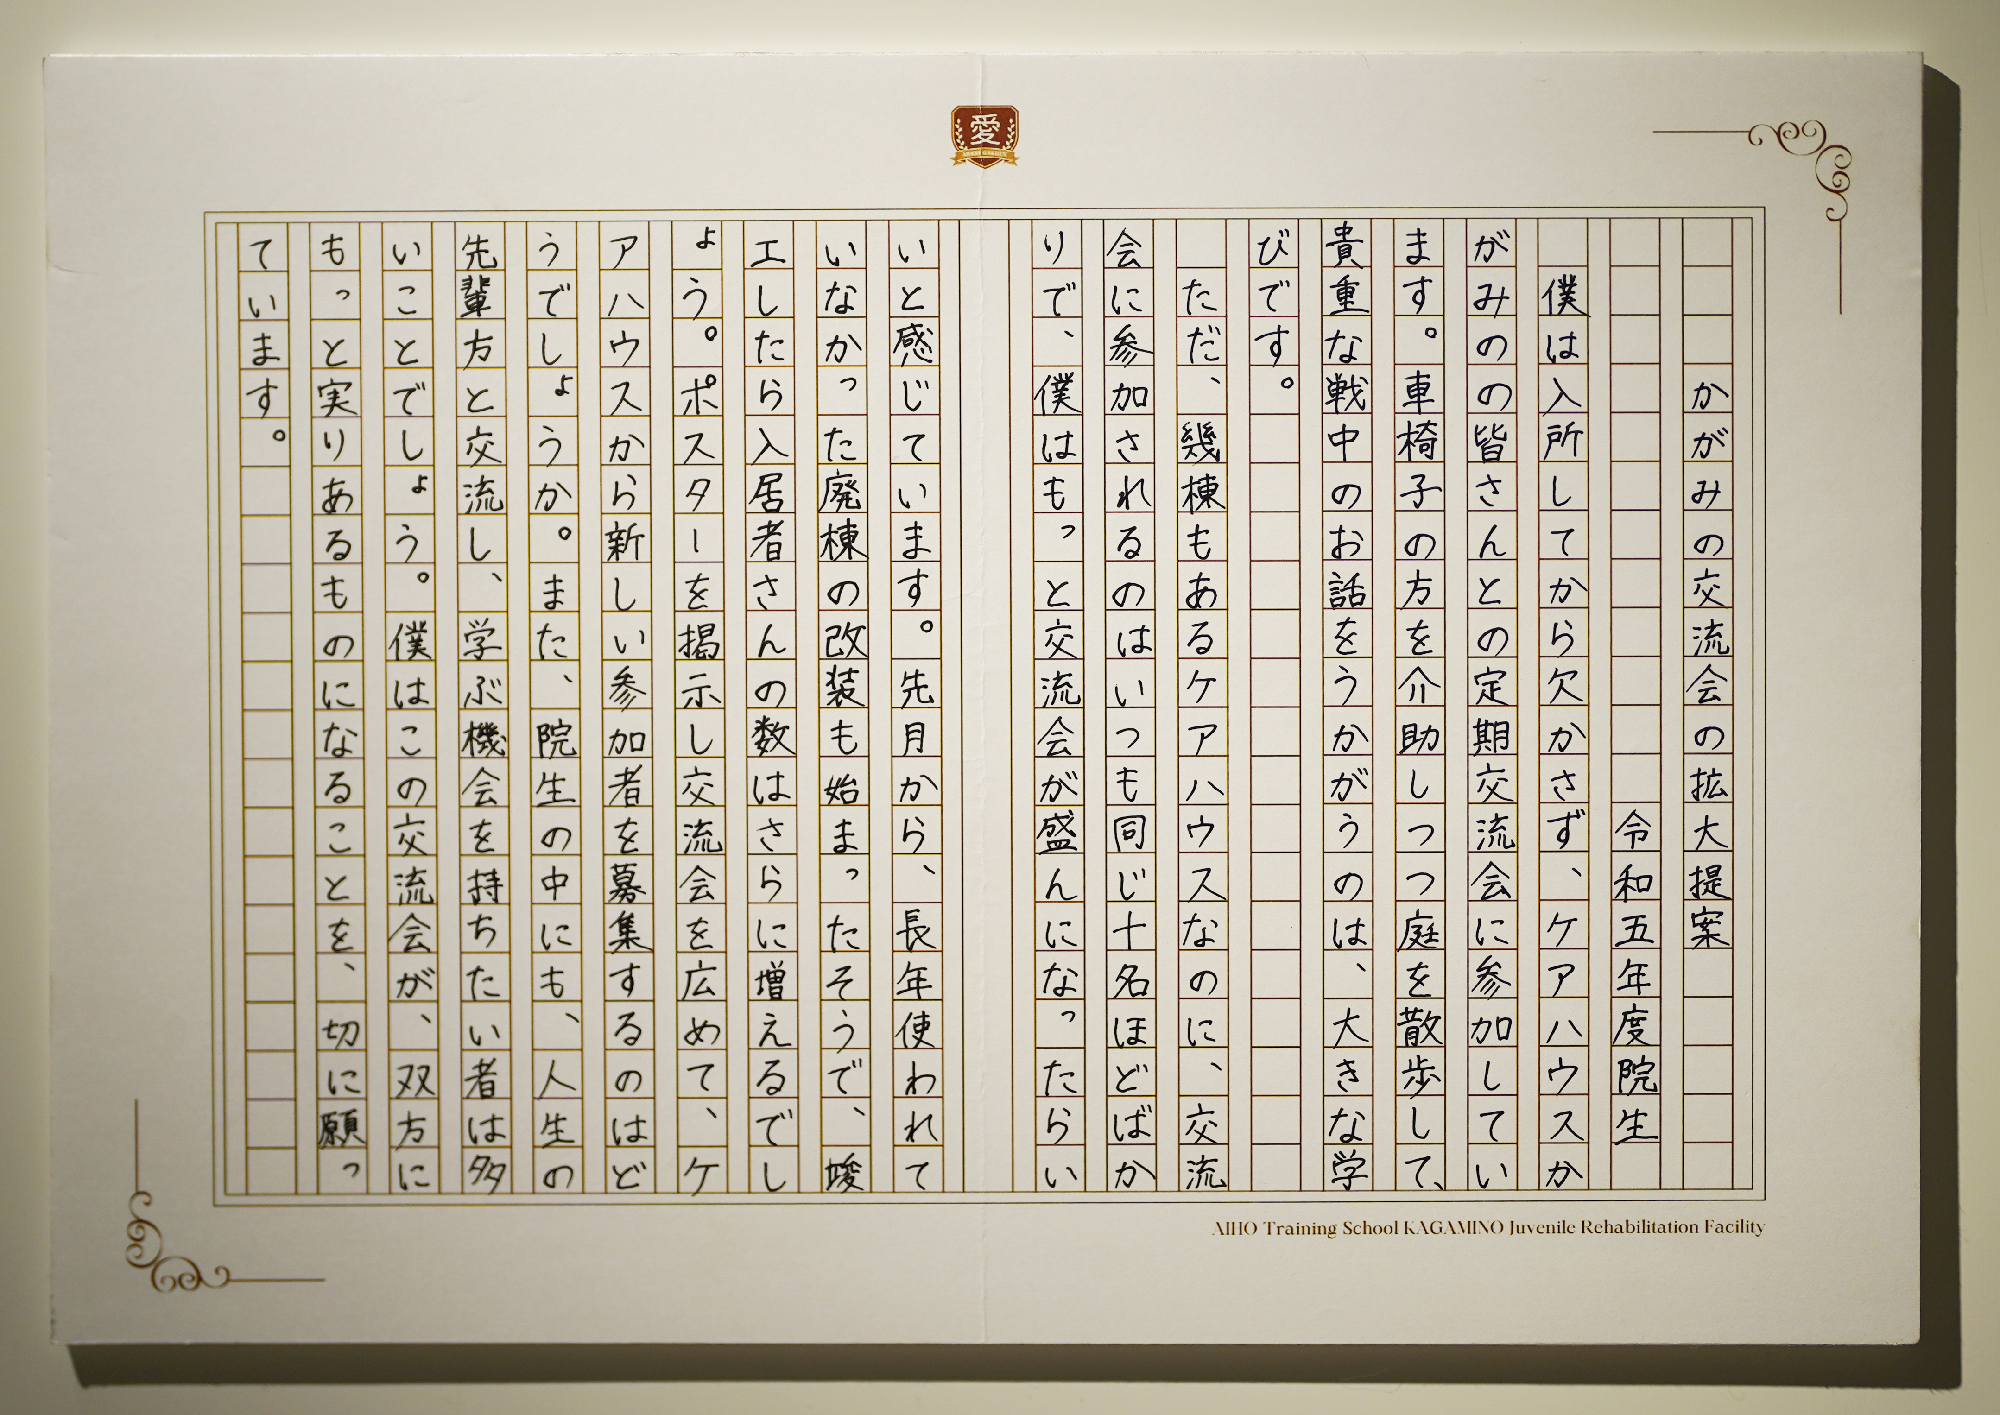 愛
かがみの交流会の拡大提案
令和五年度院生
僕は入所してから欠かさず、ケアハウスか
がみのの皆さんとの定期交流会に参加してい
ます。車椅子の方を介助しつつ庭を散歩して、
貴重な戦中のお話をうかがうのは、大きな学
びです。
ただ、幾棟もあるケアハウスなのに、交流
会に参加されるのはいつも同じ十名ほどばか
りで、僕はもっと交流会が盛んになったらい
いと感じています。先月から、長年使われて
いなかった廃棟の改装も始まったそうで、竣
工したら入居者さんの数はさらに増えるでし
ょう。ポスターを掲示し交流会を広めて、ケ
アハウスから新しい参加者を募集するのはど
うでしょうか。また、院生の中にも、人生の
先輩方と交流し、学ぶ機会を持ちたい者は多
いことでしょう。僕はこの交流会が、双方に
もっと実りあるものになることを、切に願っ
ています。
AIHO Training School KAGAMINO Juvenile Rehabilitation Facility